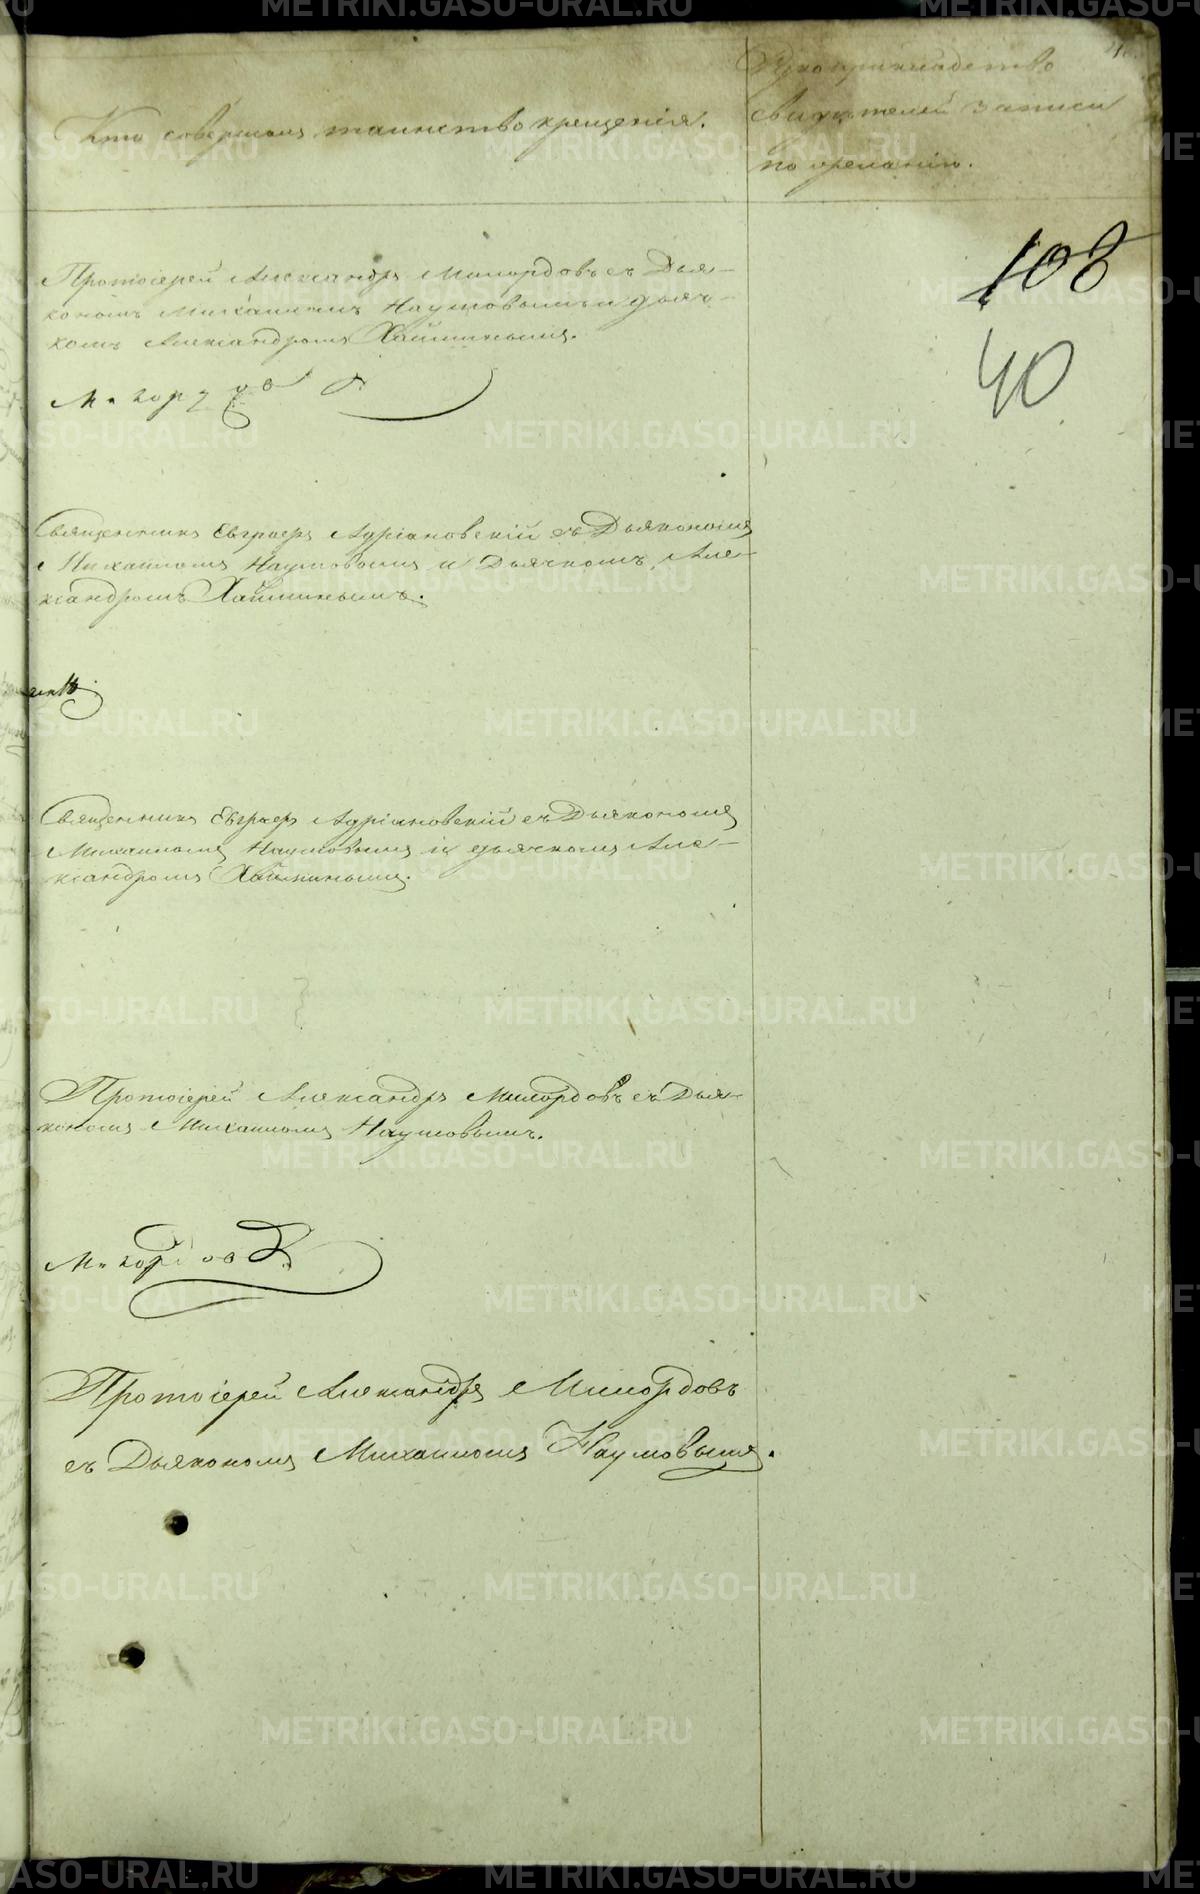 Кто совершалъ таинство крещенія.
Рукоприкладство
свидѣтелей записи
по желанію.
103
40
Протоіерей Александръ Милордовъ съ Дья-
кономъ Михаиломъ Наумовымъ и дьяч-
комъ Александромъ Хайминымъ.
Священникъ Евграфъ Адріановскій съ Дьякономъ
Михаиломъ Наумовымъ и Дьячкомъ Але-
ксандромъ Хайминымъ.
Священникъ Евграфъ Адріановскій съ Дьякономъ
Михаиломъ Наумовымъ и дьячкомъ Але-
ксандромъ Хайминымъ.
Протоіерей Александръ Милордовъ съ Дья-
кономъ Михаиломъ Наумовымъ.
Протоіерей Александръ Милордовъ
съ Дьякономъ Михаиломъ Наумовымъ.
METRIKI.GASO-URAL.RU